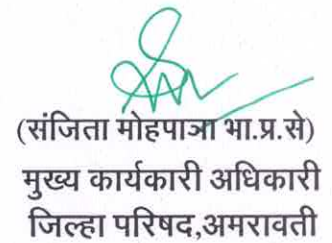 (संजिता मोहपात्रा भा.प्र.से)
मुख्य कार्यकारी अधिकारी
जिल्हा परिषद,अमरावती